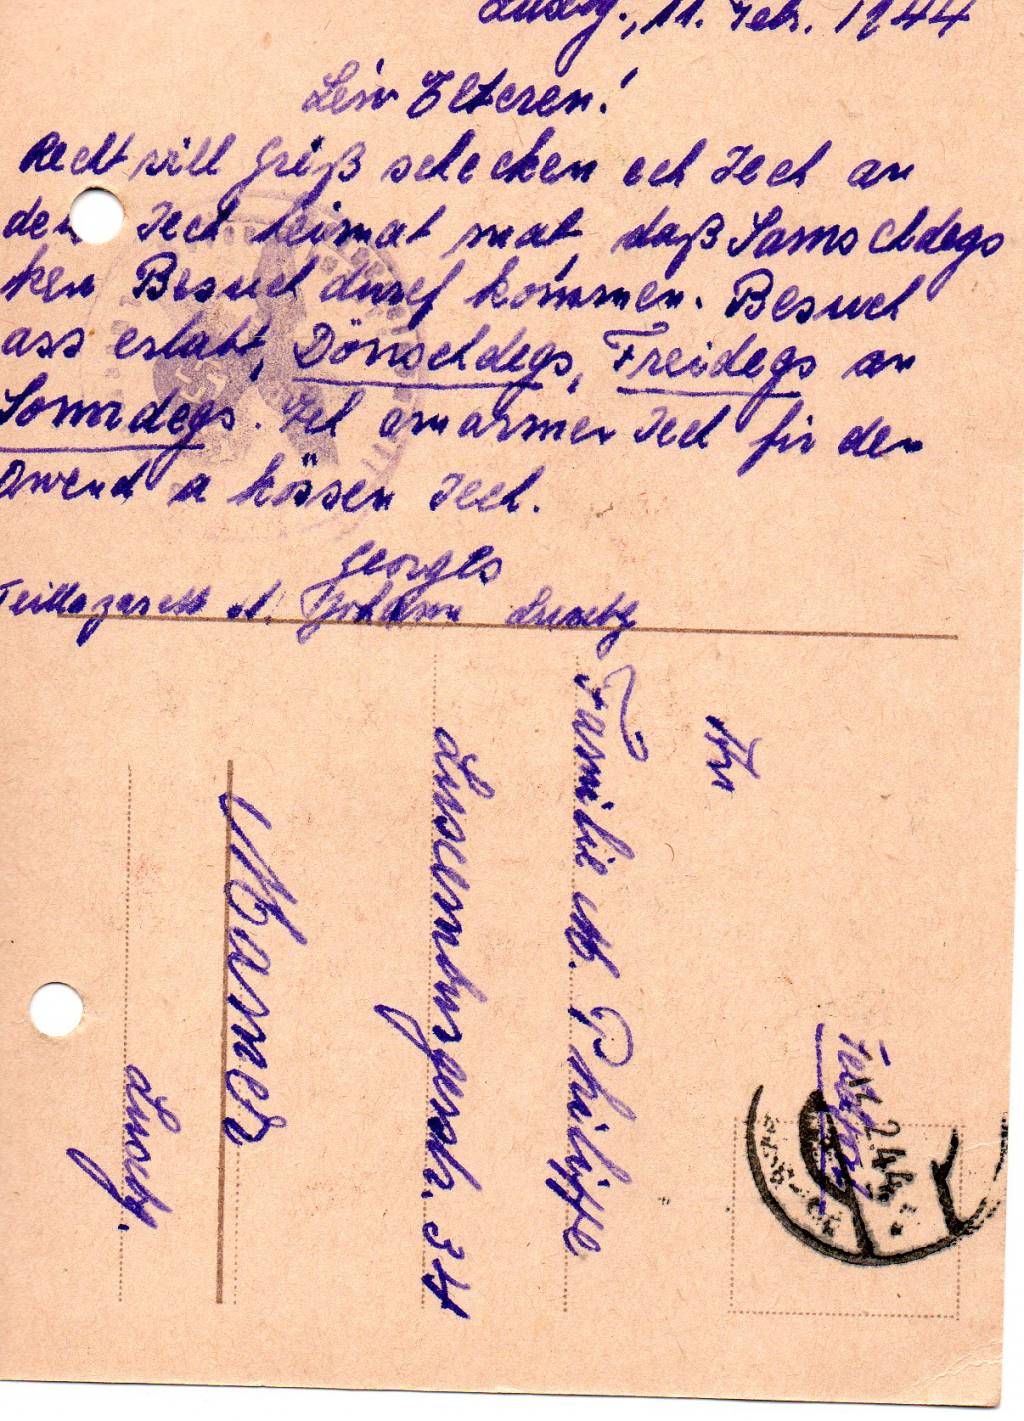 Luxbg., 11. Febr. 1944
Léiw Elteren!
Recht vill Gréiß schecken ech Iech an
den Iech heimat mat, daß Samschdegs
ken Besuch duref kommen. Besuch
ass erlabt, Dönschdegs, Freidegs an
Sonndegs. Ech ëmarmen Iech fir den
Owend a kössen Iech.
Georges
Teillazarett St. Johann Luxbg
An
Familie M. Philippe
Luxemburgerstr. 34
Mamer
Luxbg.
Feldpost